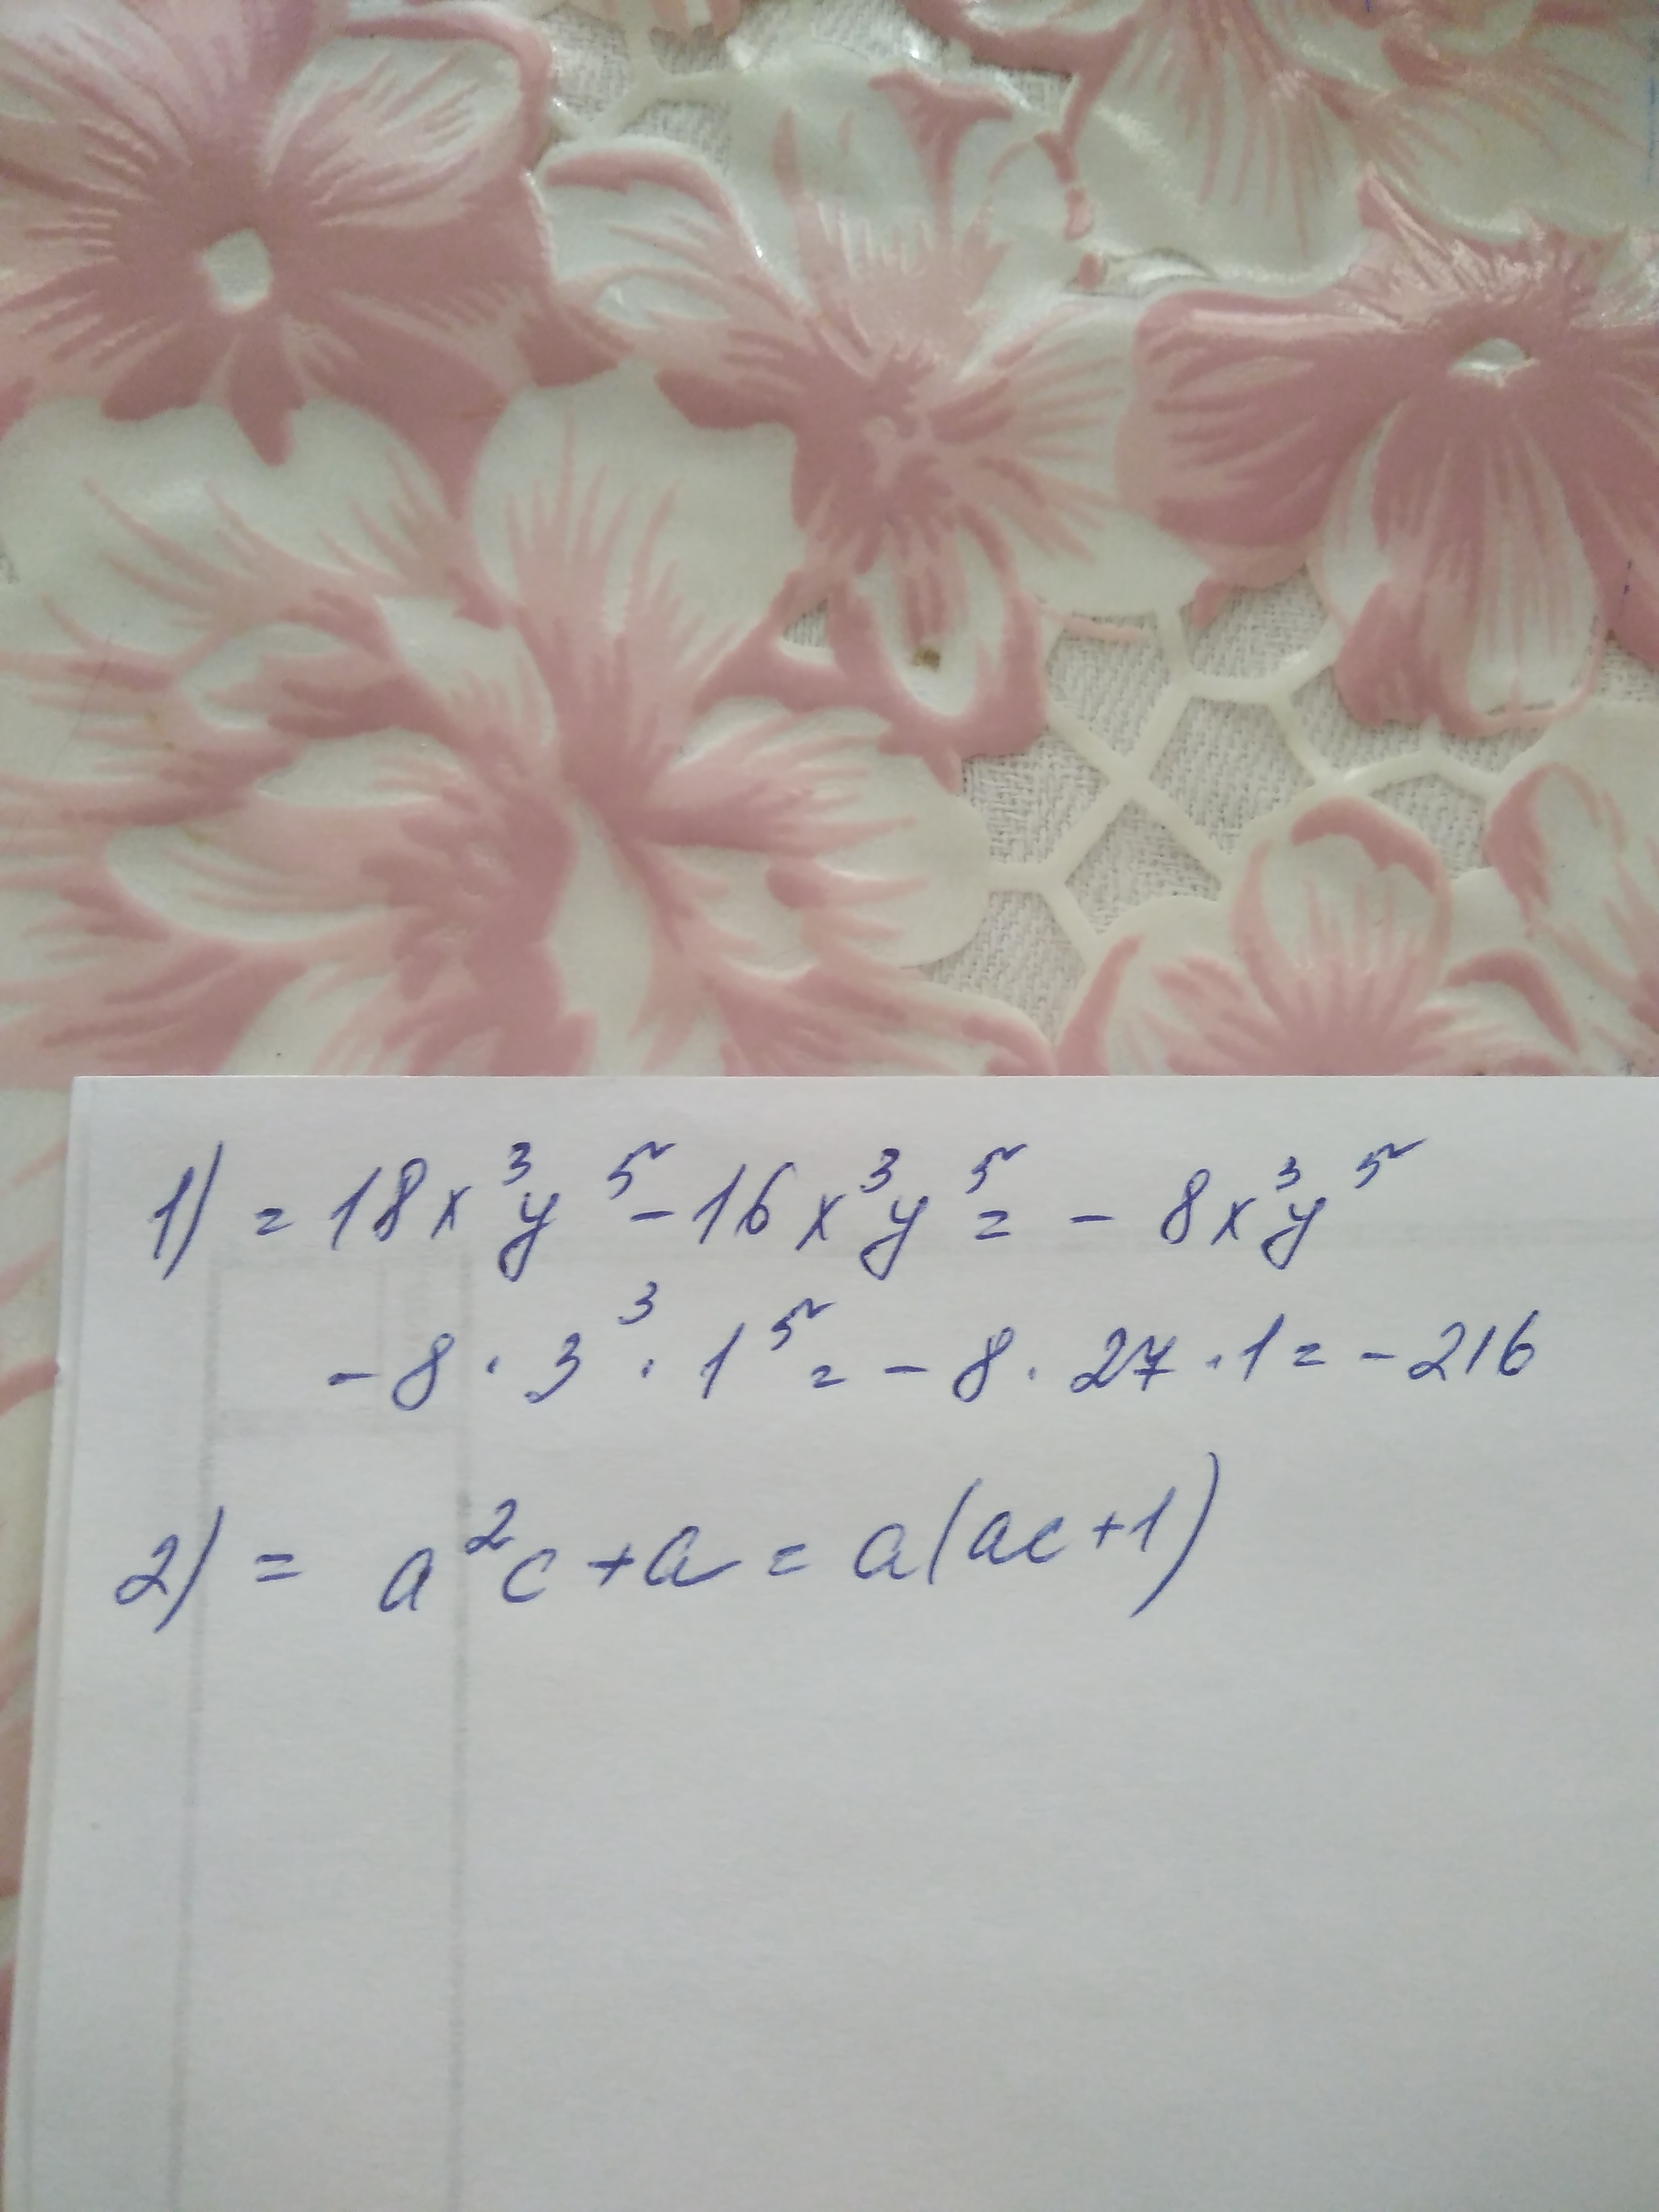 1) = 18x³y⁵ - 16x³y⁵ = - 8x³y⁵
- 8 · 3³ · 1⁵ = - 8 · 27 · 1 = - 216
2) = a²c + a = a(ac+1)